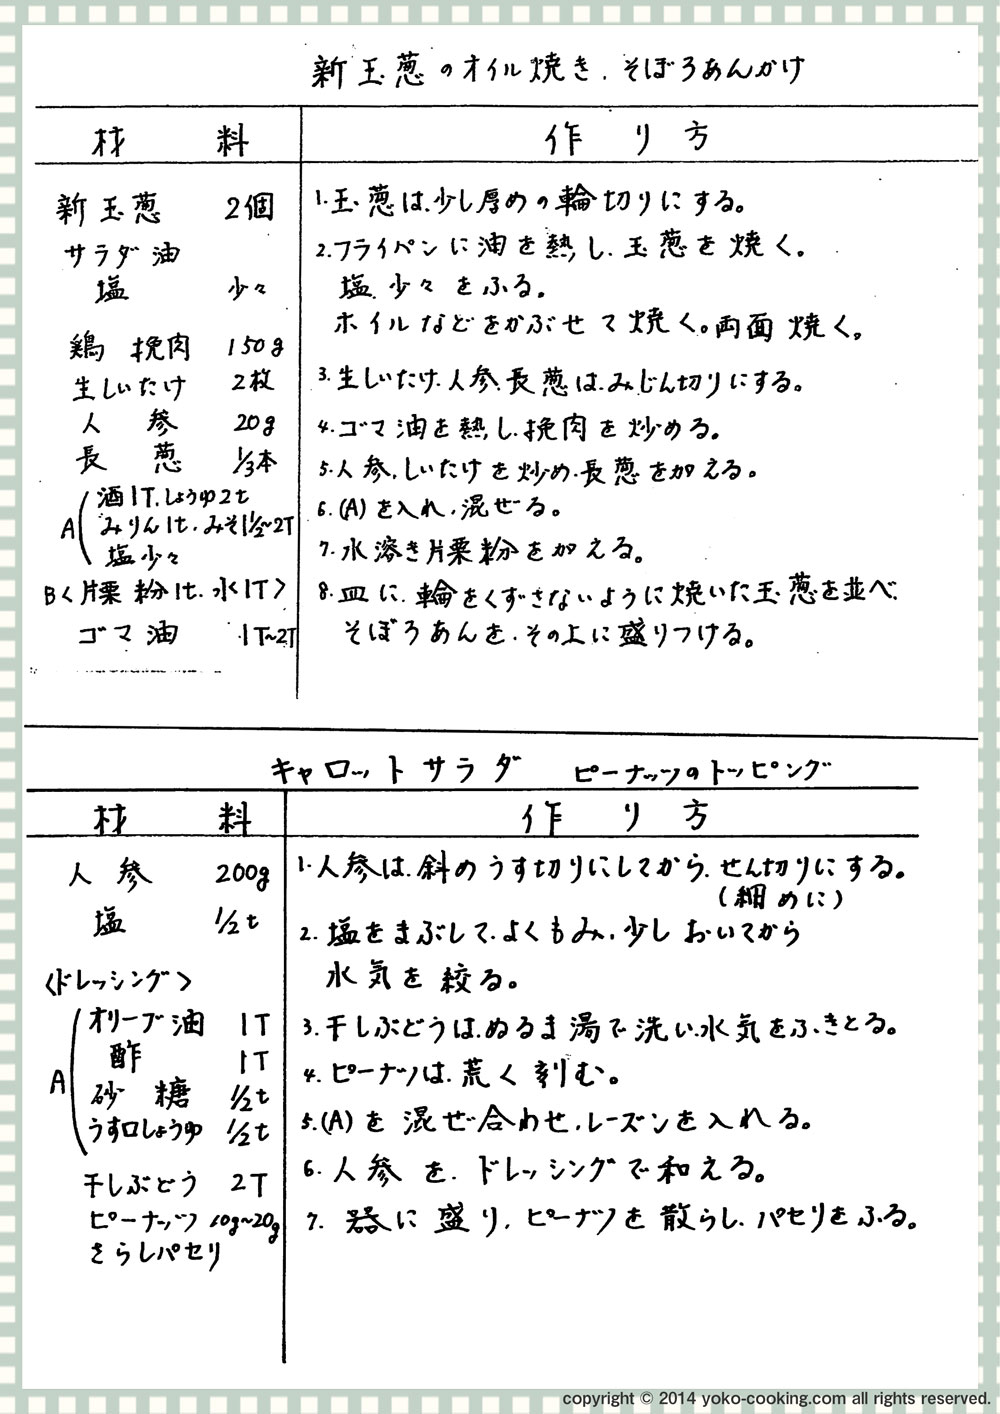 新玉葱のオイル焼き.そぼろあんかけ
材 料
作 り 方
新玉葱 2個
サラダ油
塩 少々
鶏 挽肉 150g
生しいたけ 2枚
人 参 20g
長 葱 1/3本
A
酒1T.しょうゆ2t
みりん1t.みそ1 1/2~2T
塩少々
B<片栗粉1t.水1T>
ゴマ油 1T~2T
1.玉葱は.少し厚めの輪切りにする。
2.フライパンに油を熱し.玉葱を焼く。
塩.少々をふる。
ホイルなどをかぶせて焼く。両面焼く。
3.生しいたけ.人参.長葱は.みじん切りにする。
4.ゴマ油を熱し.挽肉を炒める。
5.人参.しいたけを炒め.長葱を加える。
6.(A)を入れ.混ぜる。
7.水溶き片栗粉を加える。
8.皿に.輪をくずさないように焼いた玉葱を並べ.
そぼろあんを.その上に盛りつける。
キャロットサラダ ピーナッツのトッピング
材 料
作 り 方
人 参 200g
塩 1/2t
<ドレッシング>
A
オリーブ油 1T
酢 1T
砂糖 1/2t
うす口しょうゆ 1/2t
干しぶどう 2T
ピーナッツ 10g~20g
さらしパセリ
1.人参は.斜めうす切りにしてから.せん切りにする。
(細めに)
2.塩をまぶして.よくもみ.少しおいてから
水気を絞る。
3.干しぶどうは.ぬるま湯で洗い.水気をふきとる。
4.ピーナツは.荒く刻む。
5.(A)を混ぜ合わせ.レーズンを入れる。
6.人参を.ドレッシングで和える。
7.器に盛り.ピーナツを散らし.パセリをふる。
copyright © 2014 yoko-cooking.com all rights reserved.